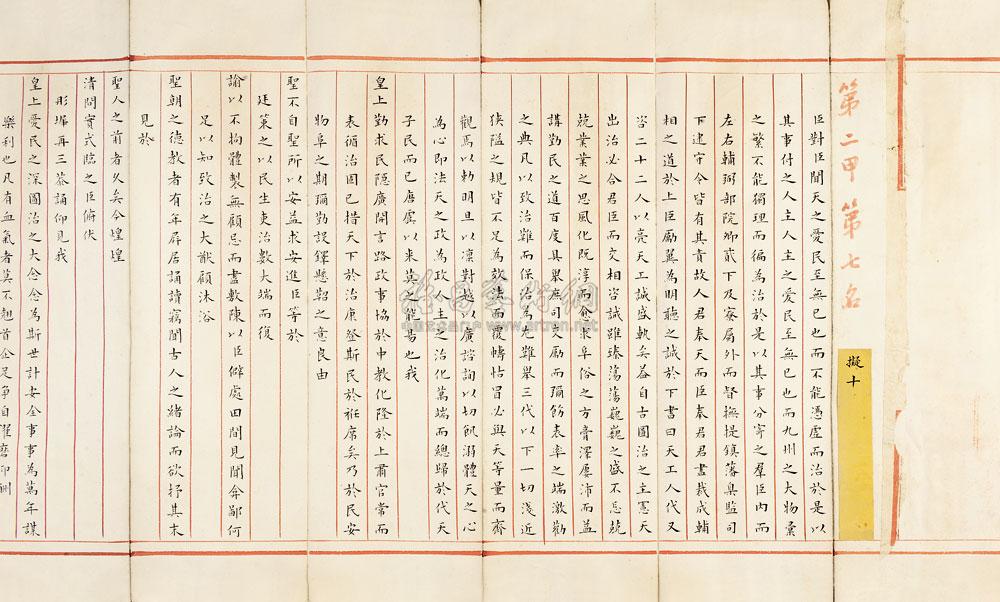 第二甲第七名
擬十
臣對臣聞天之愛民至無已也而不能憑虛而治於是以
其事付之人主人主之愛民至無已也而九州之大物彙
之繁不能獨理而徧為治於是以其事分寄之羣臣內而
左右輔弼部院卿貳下及寮屬外而督撫提鎮藩臬監司
下逮守令皆有其責故人君奉天而臣奉君君書裁成輔
相之道於上臣勵翼為明聽之誠於下書曰天工人代又
咨二十二人以亮天工誠盛軌矣益自古圖治之主憲天
出治必合君臣而交相咨誡雖臻蕩蕩巍巍之盛不忘兢
兢業業之思風化既淳而僉求阜俗之方膏澤屢沛而益
講勤民之道百度具舉庶司大勵而彌飭表率之端激勸
之典凡以致治難而保治為尤難舉三代以下一切淺近
狹隘之規皆不足為效法而覆幬怙冒必與天等量而齊
觀焉以勅明旦以凜對越以廣諮詢以切飢溺體天之心
為心即法天之政為政人主之治化萬端而總歸於代天
子民而已唐虞以來莫之能易也我
皇上勤求民隱廣開言路政事協於中教化隆於上肅官常而
表循治固已措天下於治康登斯民於袵席矣乃於民安
物阜之期彌勤設鐸懸鞀之意良由
聖不自聖所以安益求安進臣等於
廷策之以民生吏治數大端而復
諭以不拘體製無顧忌而盡敷陳以臣僻處田間見聞弇鄙何
足以知致治之大猷顧沐浴
聖朝之德教者有年屏居誦讀竊聞古人之緒論而欲抒其末
見於
聖人之前者久矣今煌煌
清問實式臨之臣俯伏
彤墀再三莶誦仰見我
皇上愛民之深圖治之大念念為斯世計安全事事為萬年謀
樂利也凡有血氣者莫不翹首企足爭自濯磨仰酬